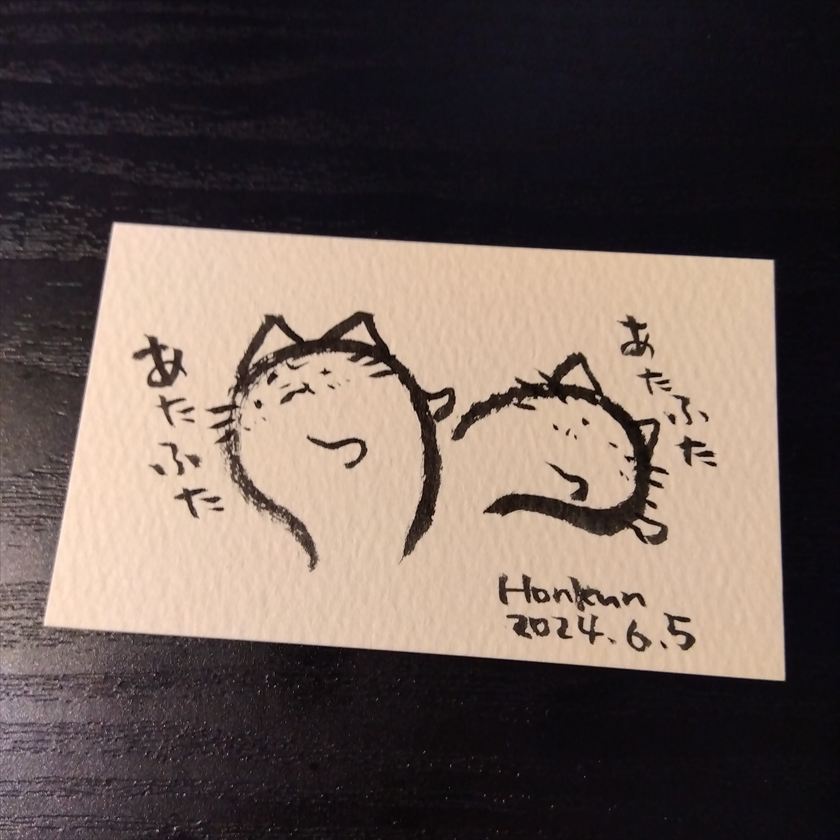 あたふた
あたふた
Honkun
2024.6.5